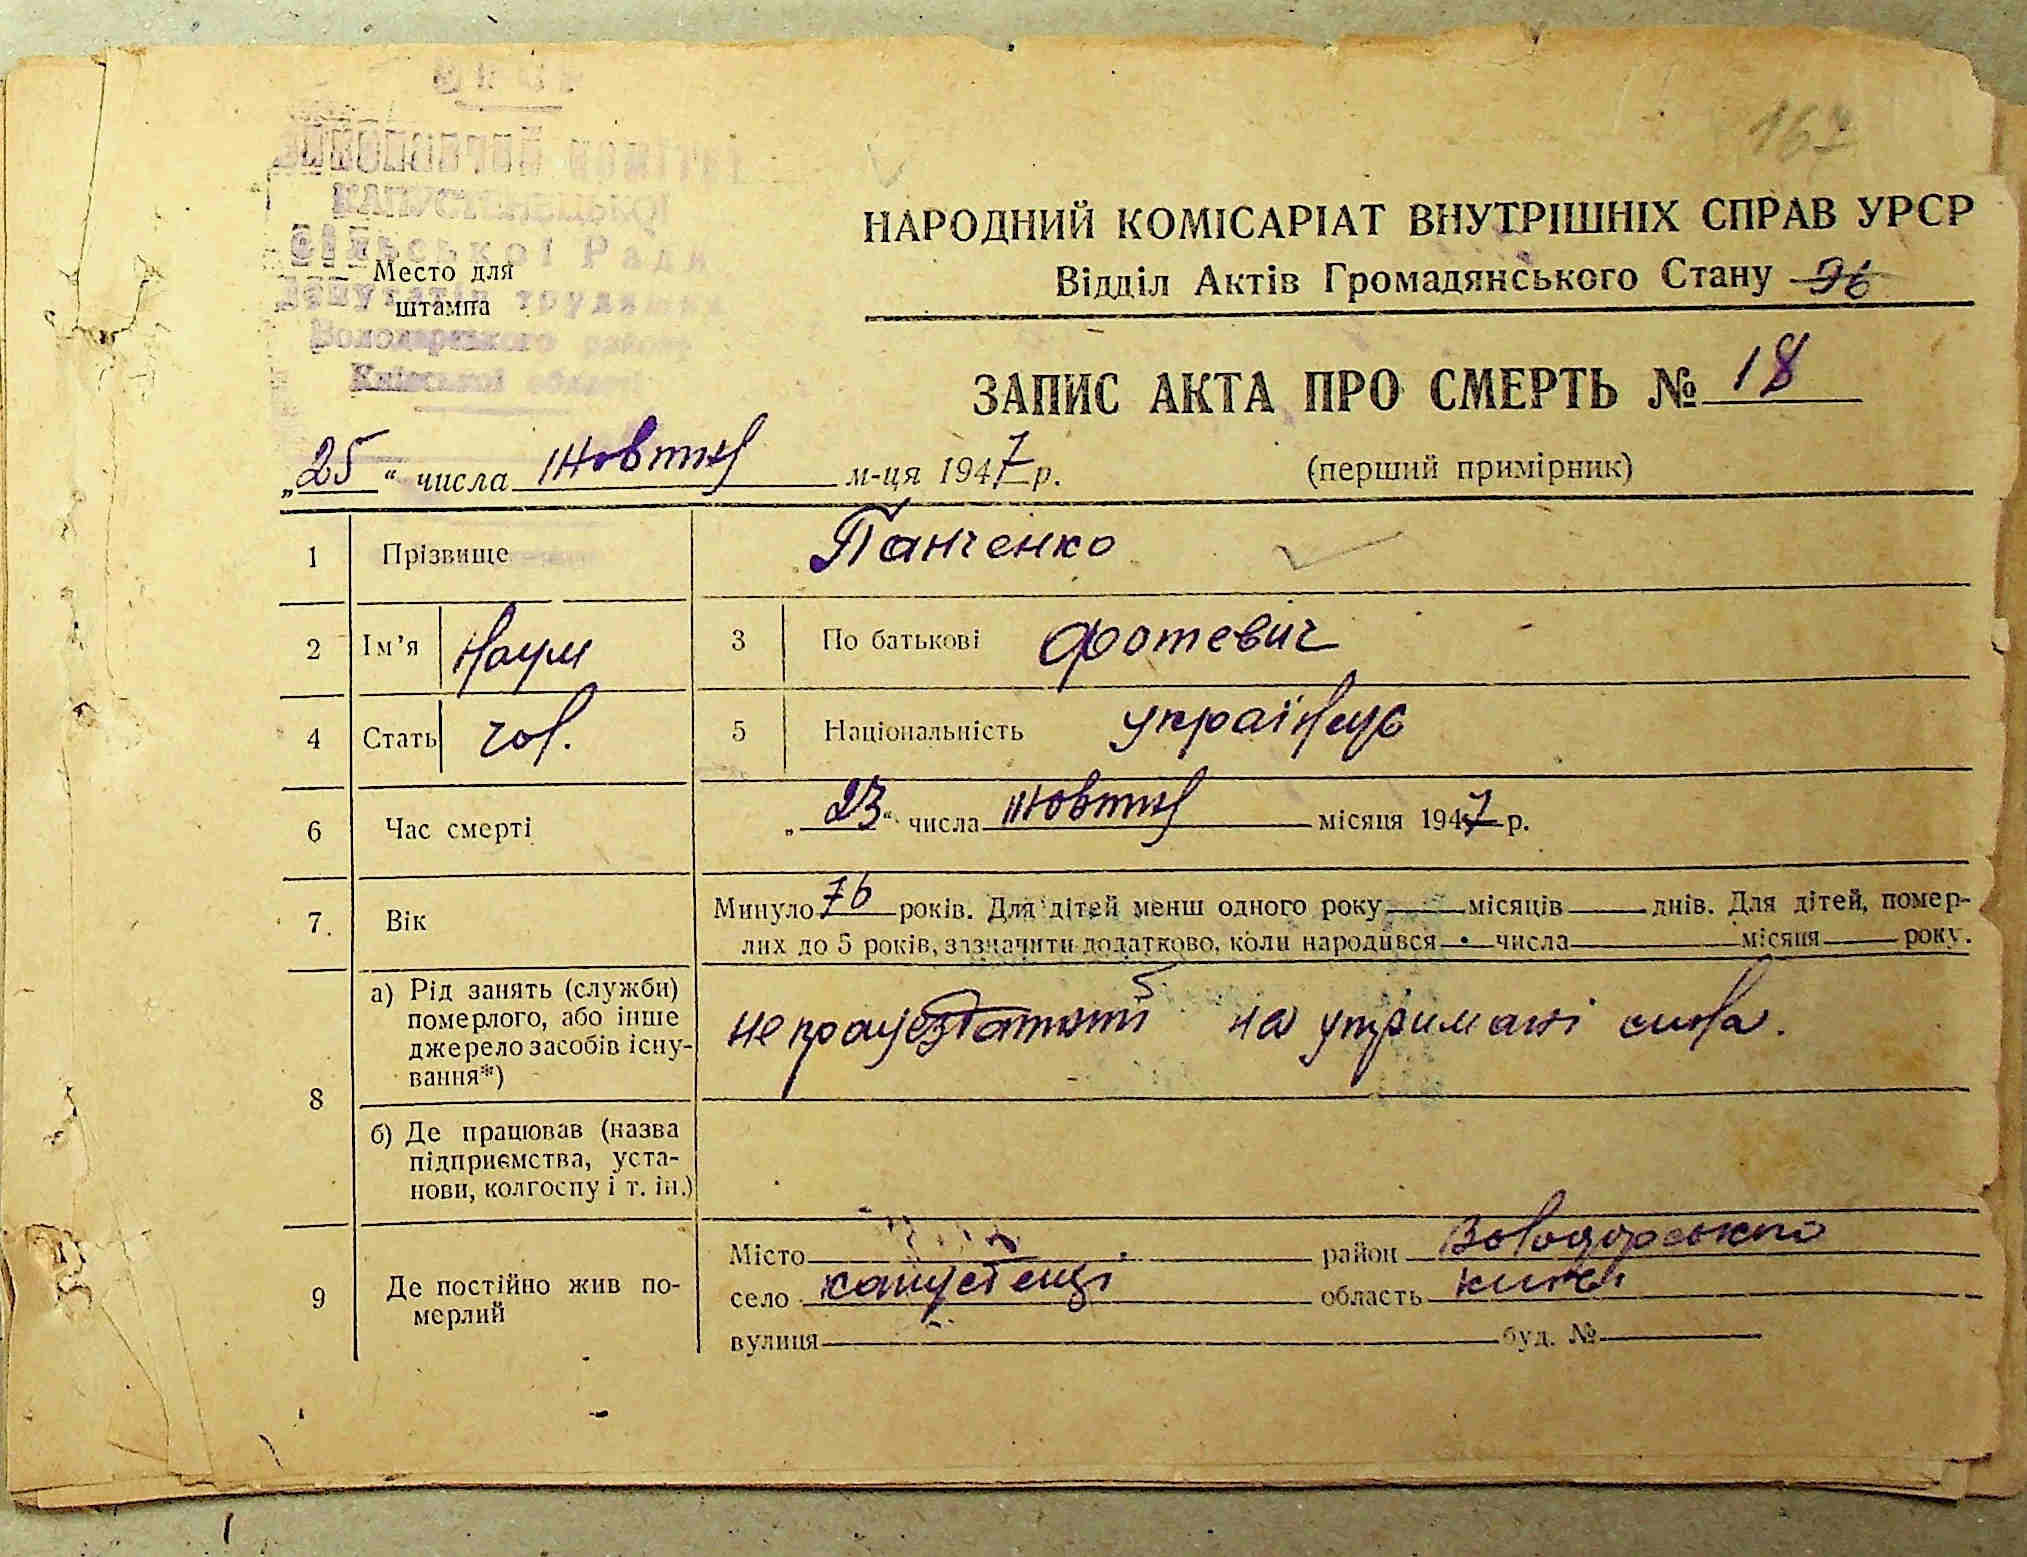 167
УРСР
Виконавчий комітет
КАПУСТЕНЕЦЬКОЇ
Сільської Ради
Депутатів трудящих
Володарського району
Київської області
Место для
штампа
НАРОДНИЙ КОМІСАРІАТ ВНУТРІШНІХ СПРАВ УРСР
Відділ Актів Громадянського Стану 76
ЗАПИС АКТА ПРО СМЕРТЬ № 18
„25“ числа жовтня м-ця 1947 р.
(перший примірник)
1 Прізвище Панченко
2 Ім'я Наум 3 По батькові Фотевич
4 Стать чол. 5 Національність українець
6 Час смерті „23“ числа жовтня місяця 1947 р.
7. Вік Минуло 76 років. Для дітей менш одного року місяців днів. Для дітей, помер-
лих до 5 років, зазначити додатково, коли народився числа місяця року.
8 а) Рід занять (служби)
померлого, або інше
джерело засобів існу-
вання*)
непрацездатний на утримані сина.
б) Де працював (назва
підприємства, уста-
нови, колгоспу і т. ін.)
9 Де постійно жив по-
мерлий
Місто район Володарського
село капустенці область київс
вулиця буд. №